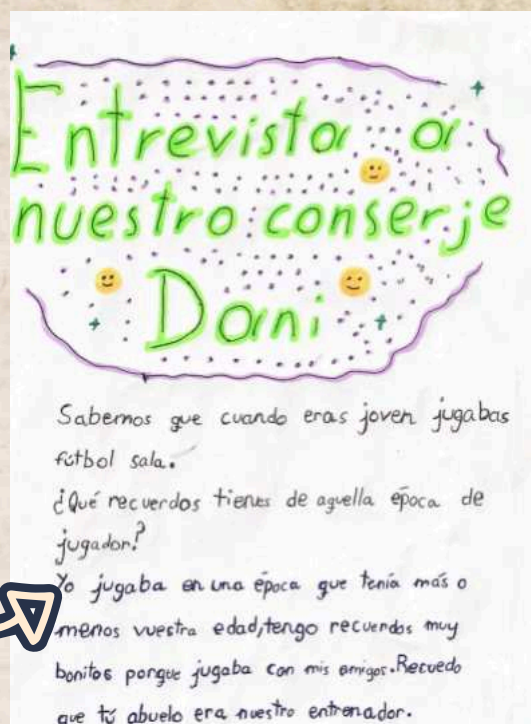 Entrevista a
nuestro conserje
Dani
Sabemos que cuando eras joven jugabas
fútbol sala.
¿Qué recuerdos tienes de aquella época de
jugador?
Yo jugaba en una época que tenía más o
menos vuestra edad, tengo recuerdos muy
bonitos porque jugaba con mis amigos. Recuedo
que tú abuelo era nuestro entrenador.